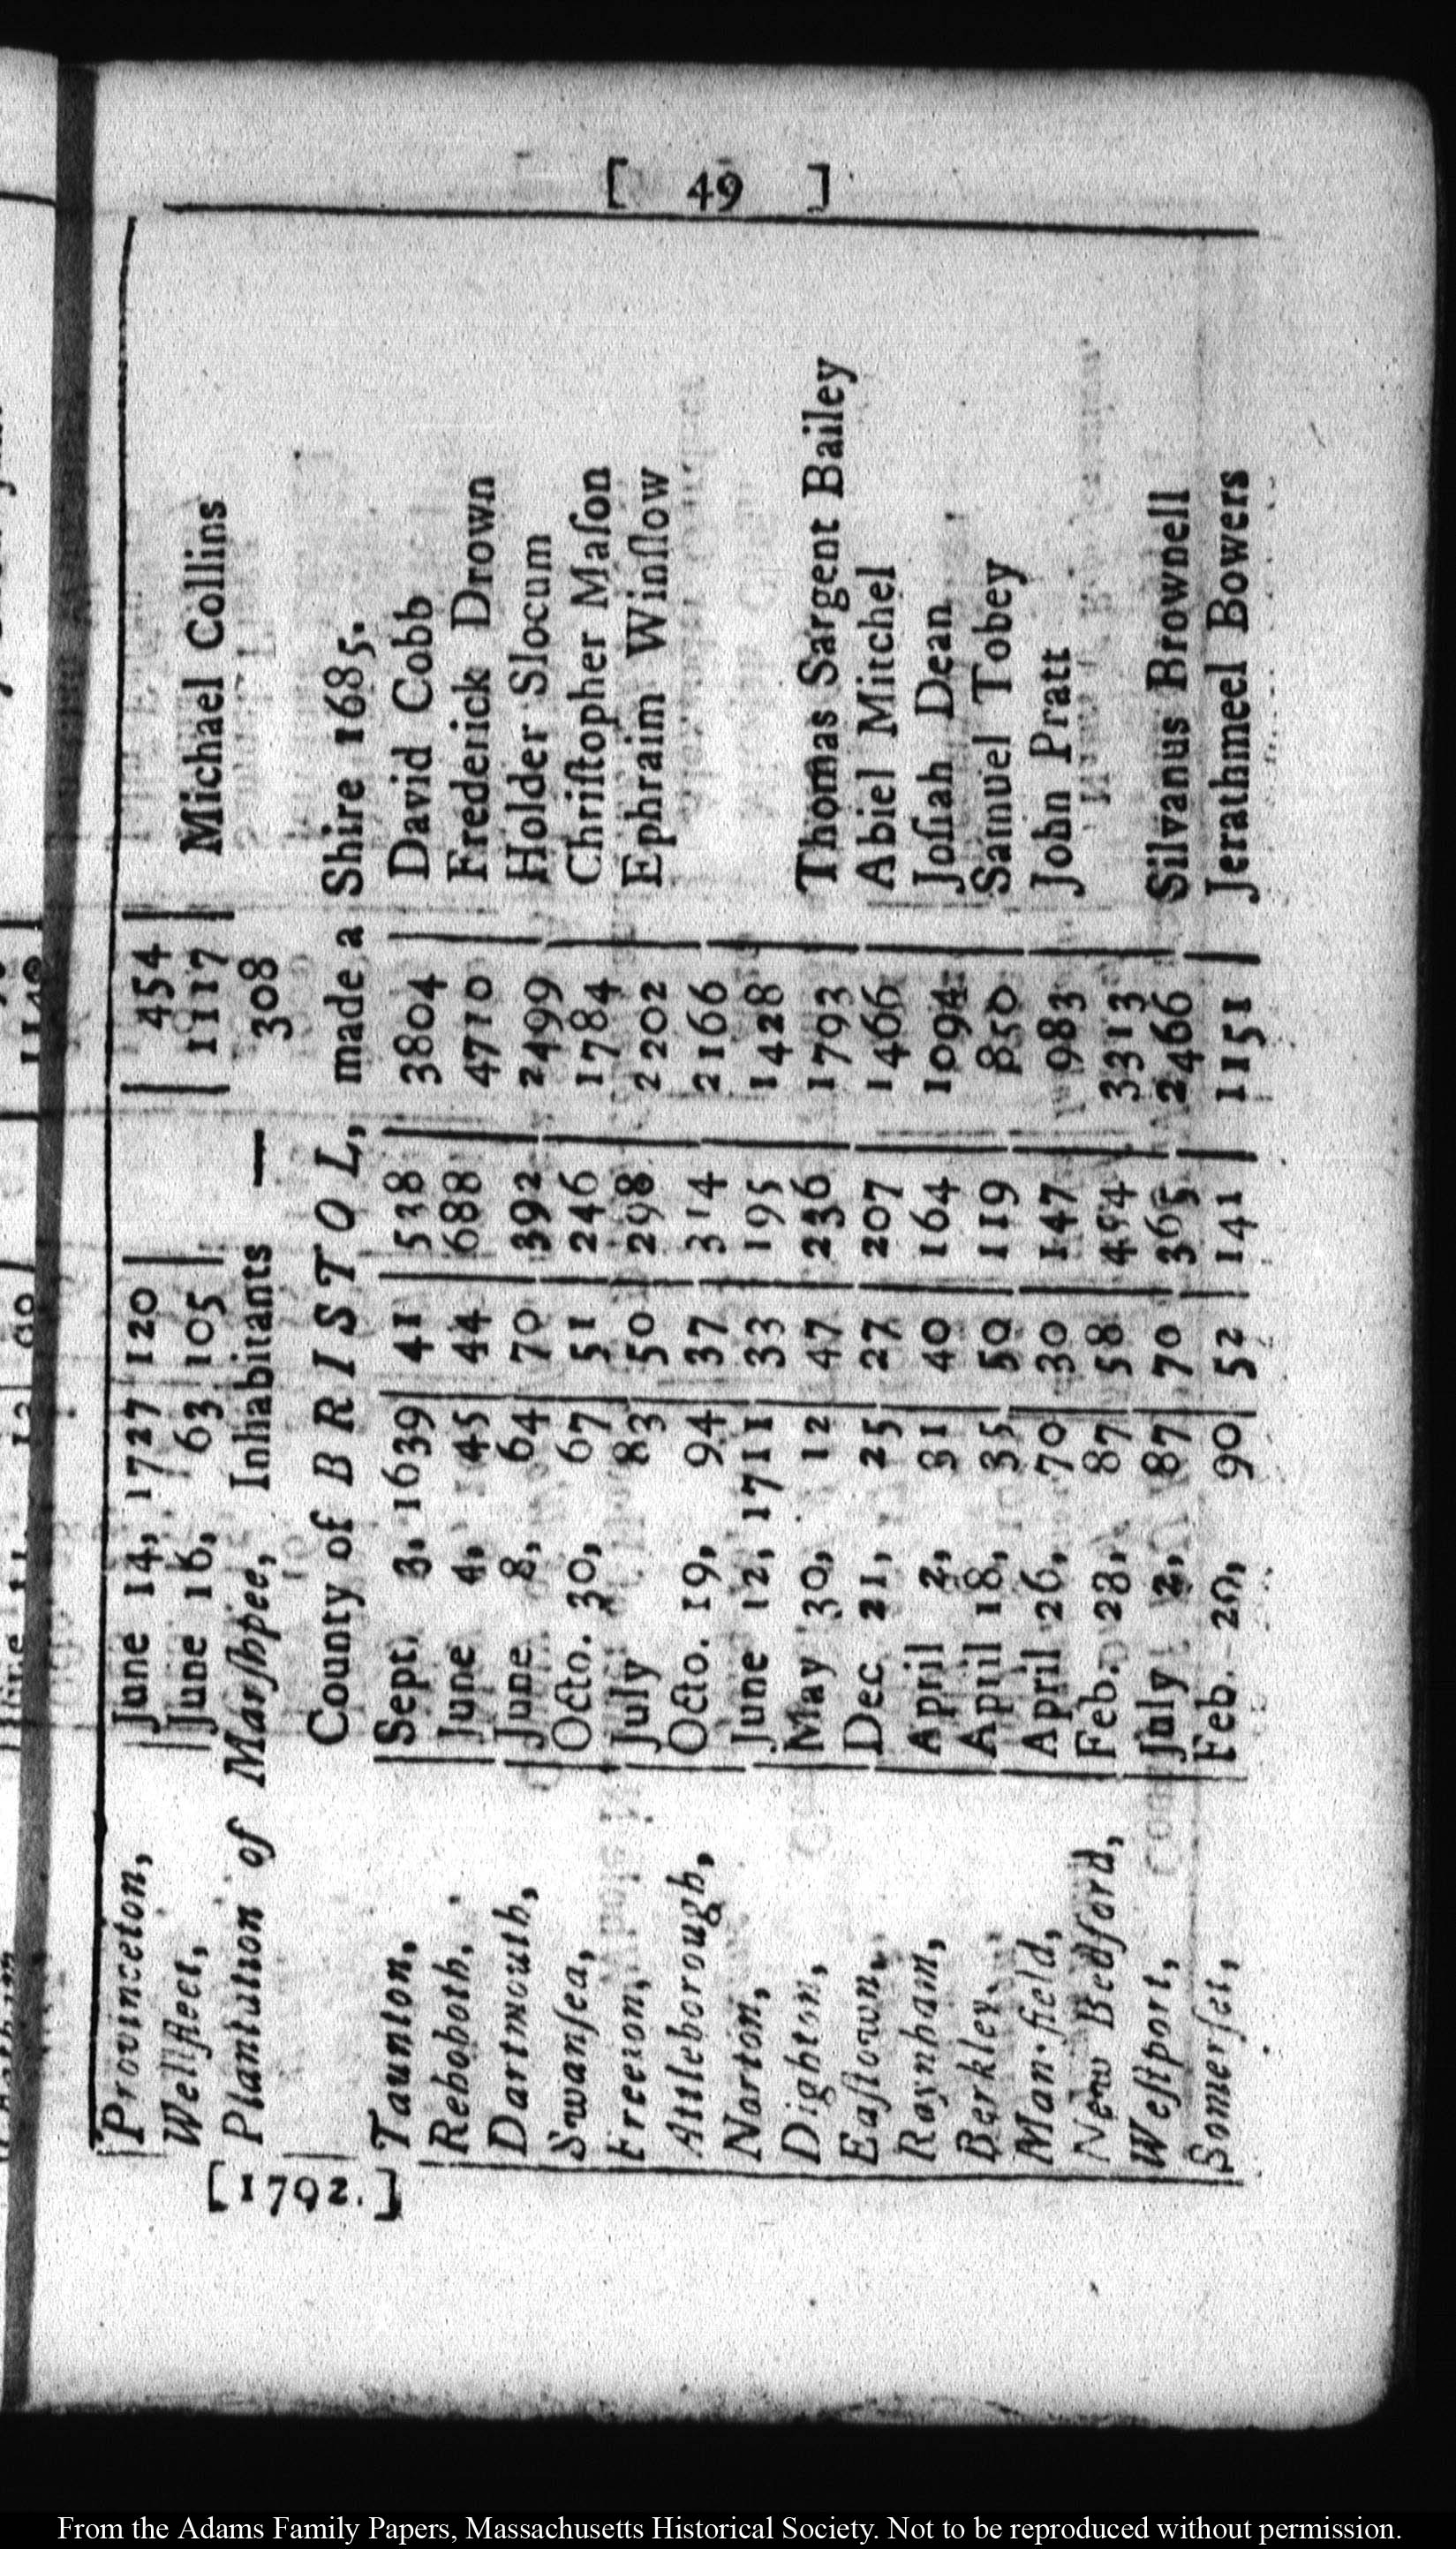 [ 49 ]
Provinceton, June 14, 1727 120 454
Wellfleet, June 16, 63 105 1117 Michael Collins
Plantation of Marſhpee, Inhabitants — 308
County of BRISTOL, made a Shire 1685.
Taunton, Sept. 3, 1639 41 538 3804 David Cobb
Rehoboth, June 4, 45 44 688 4710 Frederick Drown
Dartmouth, June 8, 64 70 392 2499 Holder Slocum
Swanſea, Octo. 30, 67 51 246 1784 Chriſtopher Maſon
Freetown, July 83 50 298 2202 Ephraim Winſlow
Attleborough, Octo. 19, 94 37 314 2166
Norton, June 12, 1711 33 195 1428
Dighton, May 30, 12 47 236 1793 Thomas Sargent Bailey
Eaſtown, Dec. 21, 25 27 207 1466 Abiel Mitchel
Raynham, April 2, 31 40 164 1094 Joſiah Dean
Berkley, April 18, 35 50 119 850 Samuel Tobey
Mansfield, April 26, 70 30 147 983 John Pratt
New Bedford, Feb. 23, 87 58 454 3313
Weſtport, July 2, 87 70 365 2466 Silvanus Brownell
Somerſet, Feb. 20, 90 52 141 1151 Jerathmeel Bowers
[1792.]
From the Adams Family Papers, Massachusetts Historical Society. Not to be reproduced without permission.